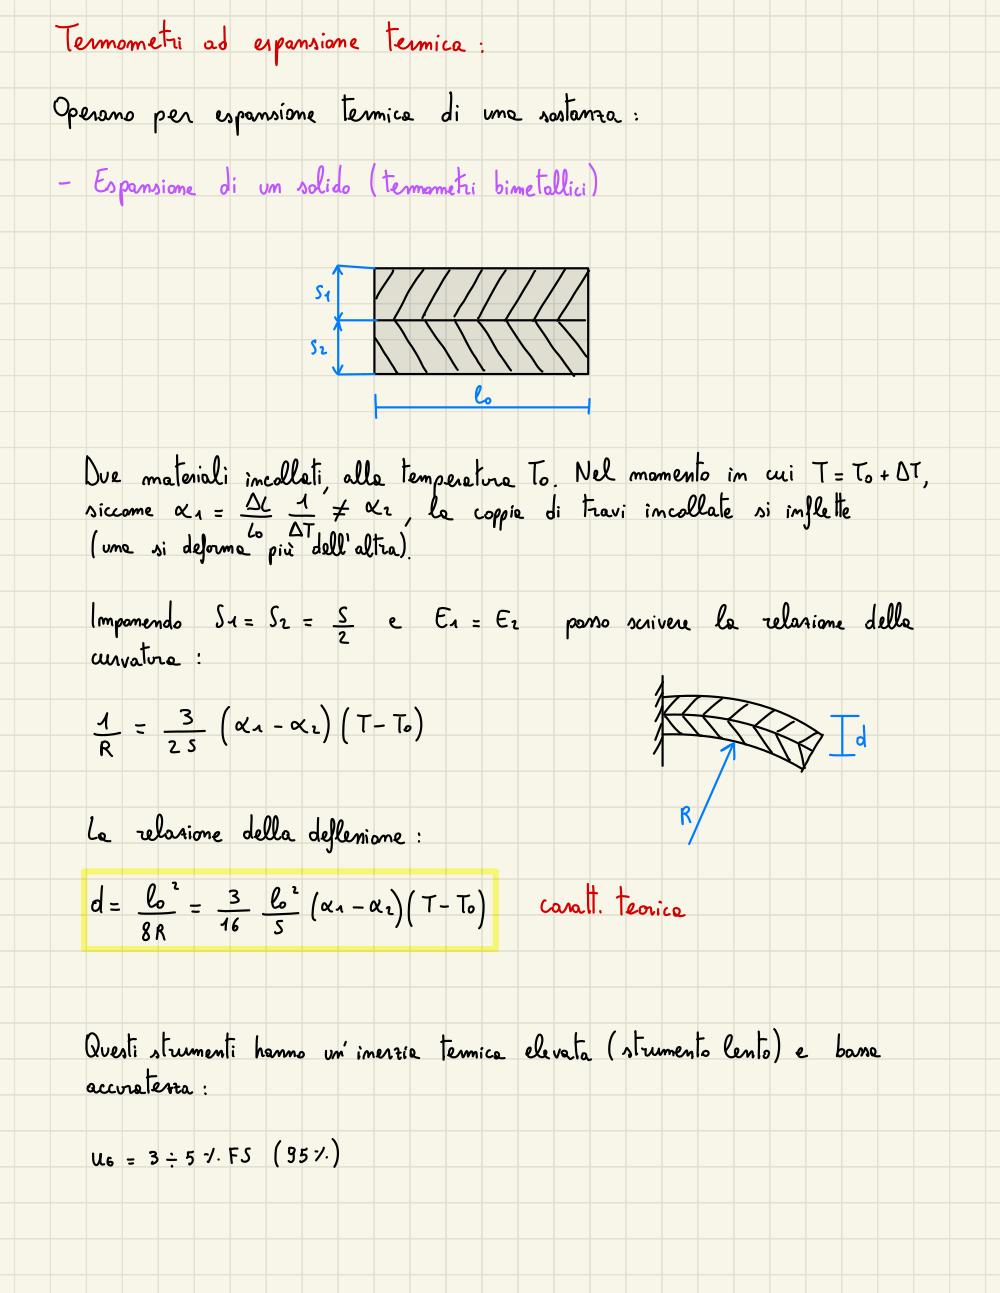 Termometri ad espansione termica :
Operano per espansione termica di una sostanza :
- Espansione di un solido (termometri bimetallici)
S1
S2
l0
Due materiali incollati, alla temperatura T0. Nel momento in cui T = T0 + ΔT,
siccome α1 = ΔL/L0 1/ΔT ≠ α2, la coppia di travi incollate si inflette
(una si deforma più dell'altra).
Imponendo S1 = S2 = S/2 e E1 = E2 posso scrivere la relazione della
curvatura :
1/R = 3/2S (α1 - α2)(T - T0)
d
R
La relazione della deflessione :
d = l0²/8R = 3/16 l0²/S (α1 - α2)(T - T0) caratt. teorica
Questi strumenti hanno un' inerzia termica elevata (strumento lento) e bassa
accuratezza :
u6 = 3 ÷ 5 % FS (95%)